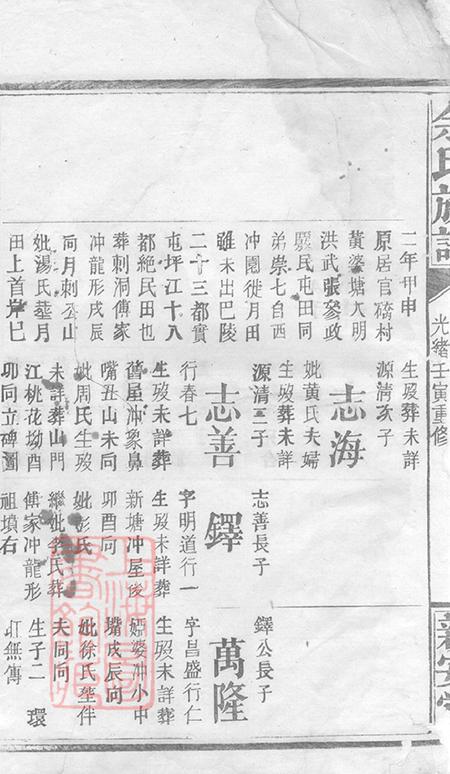 余氏族譜
光緒壬寅重修
新安堂
二年甲申
原居官橋村
黃婆塘大明
洪武張參政
驟民屯田同
弟崇七自西
冲園徙月田
雖未出巴陵
二十三都實
屯坪江十八
都絶民田也
葬刺洞傅家
冲龍形戌辰
向月刺公山
妣湯氏塟月
田上首岸巳
生歿葬未詳
源清亥子
志海
妣黃氏夫婦
生歿葬未詳
源清二子
志善
行春七
生歿未詳葬
舊屋冲象鼻
嘴丑山未向
妣周氏生歿
未詳葬山門
江桃花坳酉
卯向立碑圖
志善長子
鐸
字明道行一
生歿未詳葬
新塘冲屋後
卯酉向
妣彭氏
繼妣李氏葬
傅家冲龍形
祖墳右
鐸公長子
萬隆
字昌盛行仁
生歿未詳葬
婆冲小中
嘴戌辰向
妣徐氏塟伴
夫同向
生子二 環
無傳